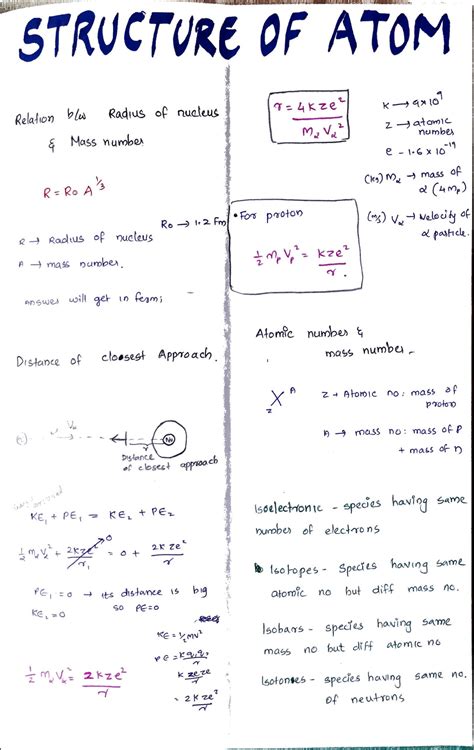 STRUCTURE OF ATOM
Relation b/w Radius of nucleus
& Mass number
R = Ro A^1/3
Ro → 1.2 Fm
R → Radius of nucleus
A → mass number.
answer will get in ferm;
Distance of closest Approach.
Distance
of closest approach
KE₁ + PE₁ = KE₂ + PE₂
½ mα Vα² + 2KZe²/r₁ → 0 = 0 + 2KZe²/r
PE₁ = 0 → its distance is big
so PE = 0
KE₂ = 0
KE = ½ mv²
PE = Kq₁q₂/r
K ze ze/r
= 2K ze²/r
½ mα Vα² = 2KZe²/r
r = 4KZe²/Mα Vα²
K → 9 x 10⁹
Z → atomic
number
e - 1.6 x 10⁻¹⁹
(kg) Mα → mass of
α (4Mp)
(m/s) Vα → Velocity of
α particle.
• For proton
½ mp Vp² = KZe²/r.
Atomic number &
mass number -
zX^A
Z → Atomic no: mass of
proton
A → mass no: mass of P
+ mass of n
Isoelectronic - species having same
number of electrons
Isotopes - Species having same
atomic no but diff mass no.
Isobars - species having same
mass no but diff atomic no
Isotones - species having same no.
of neutrons